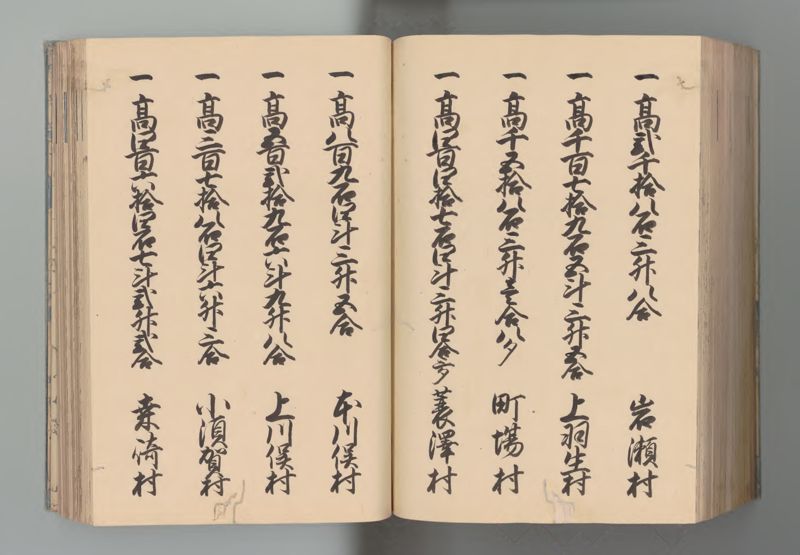 一 高弐千拾八石三升八合 岩瀬村
一 高千百七拾九石五斗三升五合 上羽生村
一 高千五拾八石三升壱合八夕 町場村
一 高四百四拾七石四斗三升四合 蓑澤村
一 高八百九石四斗三升五合 本川俣村
一 高五百弐拾九石六斗九升八合 上川俣村
一 高三百七拾八石四斗六升三合 小須賀村
一 高四百六拾四石七斗弐升弐合 桑崎村